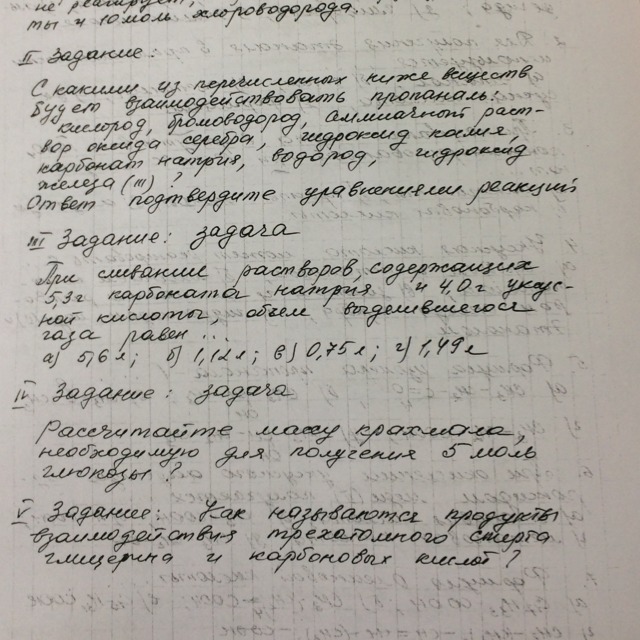 не реагирует,
ты и 10 моль хлороводорода
II Задание:
С какими из перечисленных ниже веществ
будет взаимодействовать пропаналь:
кислород, бромоводород, аммиачный раст-
вор оксида серебра, гидроксид калия,
карбонат натрия, водород, гидроксид
железа (III) ?
Ответ подтвердите уравнениями реакций
III Задание: задача
При сливании растворов, содержащих
5,3г карбоната натрия и 4,0г уксус-
ной кислоты, объем выделившегося
газа равен ...
а) 5,6 л; б) 1,12 л; в) 0,75 л; г) 1,49 л
IV Задание: задача
Рассчитайте массу крахмала,
необходимую для получения 5 моль
глюкозы ?
V Задание: Как называются продукты
взаимодействия трехатомного спирта
глицерина и карбоновых кислот ?